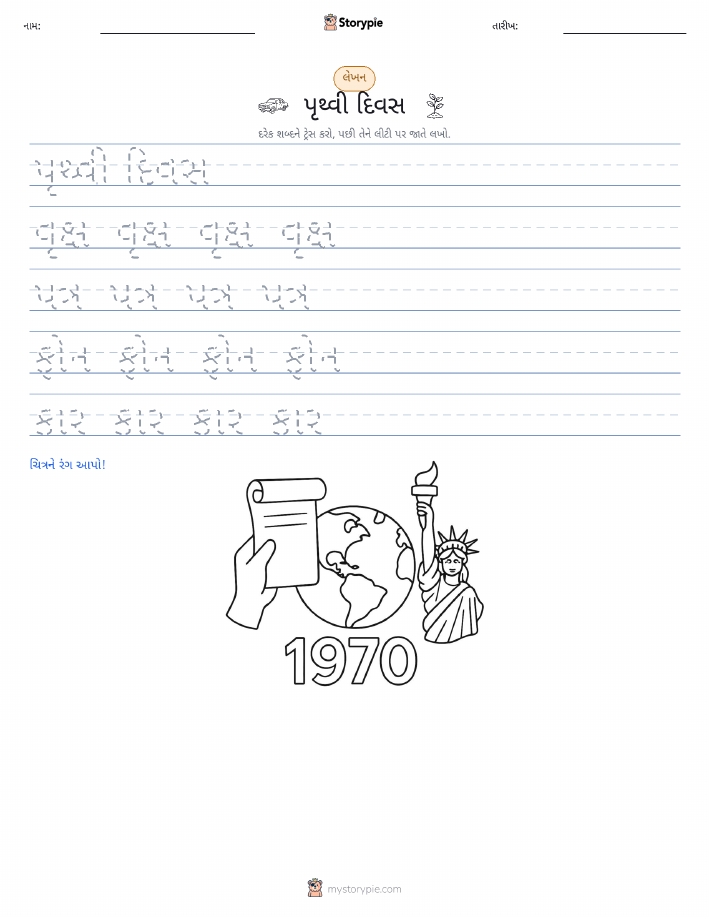 નામ:
Storypie
તારીખ:
લેખન
પૃથ્વી દિવસ
દરેક શબ્દને ટ્રેસ કરો, પછી તેને લીટી પર જાતે લખો.
પૃથ્વી દિવસ
વૃક્ષ વૃક્ષ વૃક્ષ વૃક્ષ
પત્ર પત્ર પત્ર પત્ર
ફોન ફોન ફોન ફોન
કાર કાર કાર કાર
ચિત્રને રંગ આપો!
1970
mystorypie.com